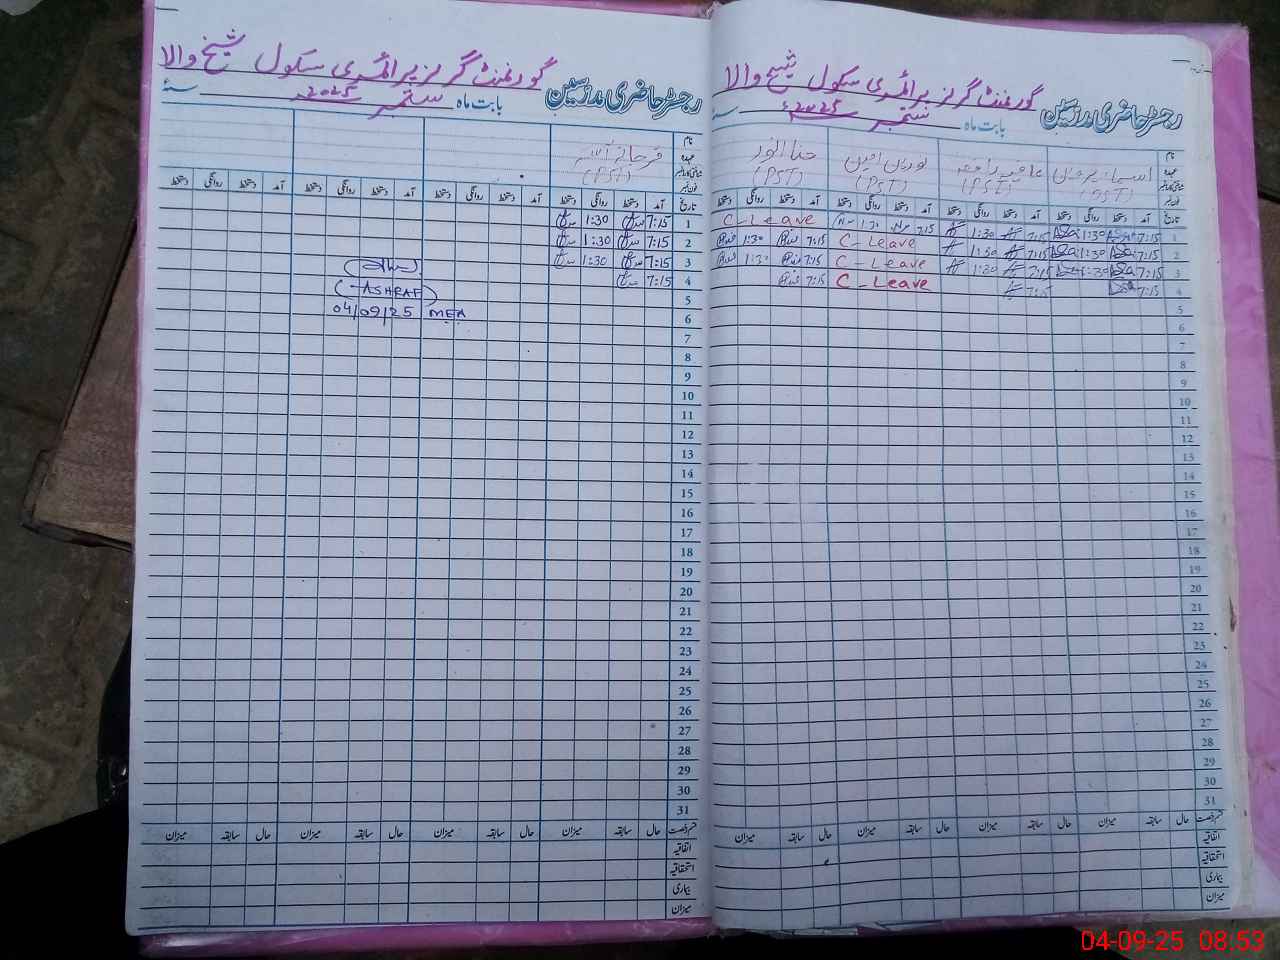 گورنمنٹ گرلز پرائمری سکول شیخ والا
رجسٹر حاضری مدرسین بابت ماہ ستمبر 2025ء
نام
عہدہ
تاریخ
اسماء پروین (PST)
عافیہ رافعہ (PST)
نورین امین (PST)
حنا انور (PST)
آمد دستخط روانگی دستخط آمد دستخط روانگی دستخط آمد دستخط روانگی دستخط آمد دستخط روانگی دستخط
1 7:15 1:30 7:15 1:30 7:15 1:30 C-Leave
2 7:15 1:30 7:15 1:30 C-Leave 7:15 1:30
3 7:15 1:30 7:15 1:30 C-Leave 7:15 1:30
4 7:15 7:15 C-Leave 7:15
5
6
7
8
9
10
11
12
13
14
15
16
17
18
19
20
21
22
23
24
25
26
27
28
29
30
31
قسم رخصت حال سابقہ میزان حال سابقہ میزان حال سابقہ میزان حال سابقہ میزان
اتفاقیہ
استحقاقیہ
بیماری
میزان
گورنمنٹ گرلز پرائمری سکول شیخ والا
رجسٹر حاضری مدرسین بابت ماہ ستمبر 2025 سنہ
نام
عہدہ
تاریخ
(PST)
آمد دستخط روانگی دستخط آمد دستخط روانگی دستخط آمد دستخط روانگی دستخط آمد دستخط روانگی دستخط
1 7:15 1:30
2 7:15 1:30
3 7:15 1:30
4 7:15
5 (ASHRAF)
6 04/09/25 MEA
7
8
9
10
11
12
13
14
15
16
17
18
19
20
21
22
23
24
25
26
27
28
29
30
31
قسم رخصت حال سابقہ میزان حال سابقہ میزان حال سابقہ میزان حال سابقہ میزان
اتفاقیہ
استحقاقیہ
بیماری
میزان
04-09-25 08:53